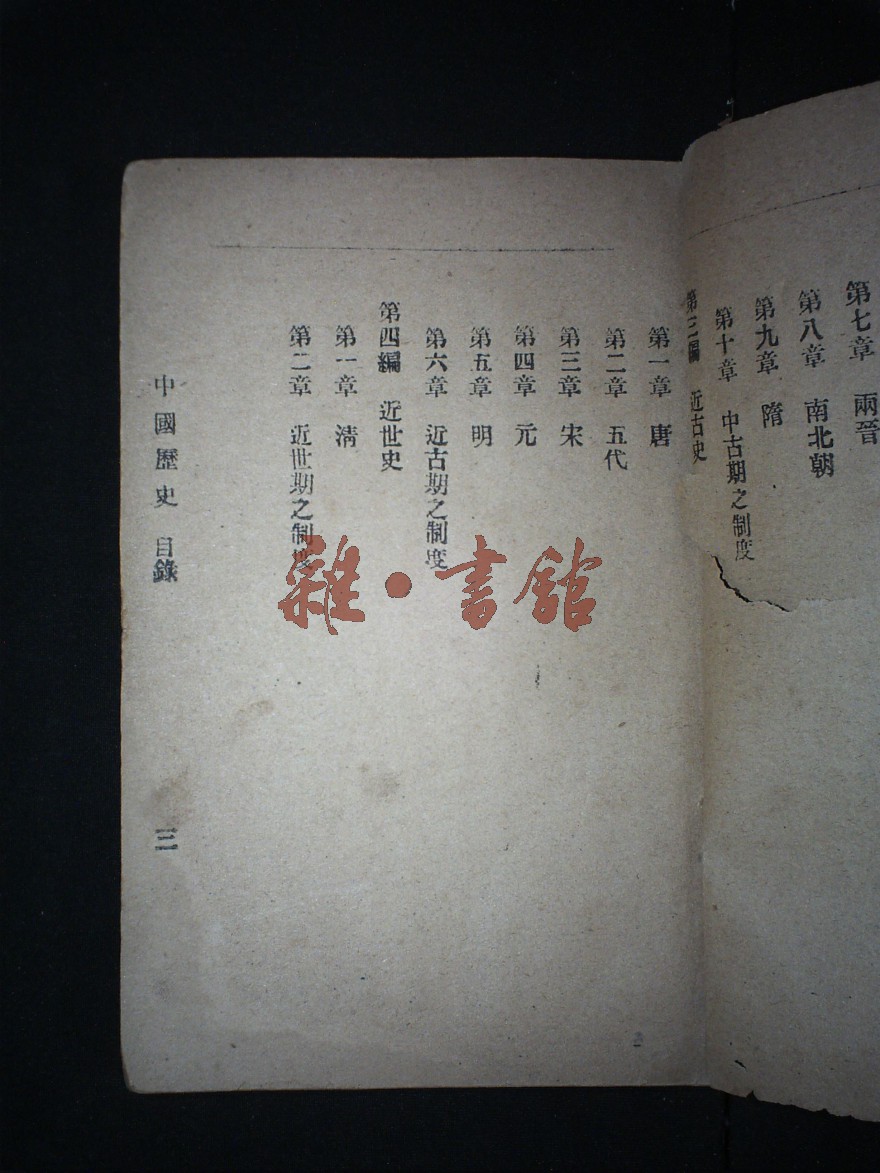 第七章　兩晉
第八章　南北朝
第九章　隋
第十章　中古期之制度
第三編　近古史
第一章　唐
第二章　五代
第三章　宋
第四章　元
第五章　明
第六章　近古期之制度
第四編　近世史
第一章　淸
第二章　近世期之制度
中國歷史　目錄
三
雜·書館